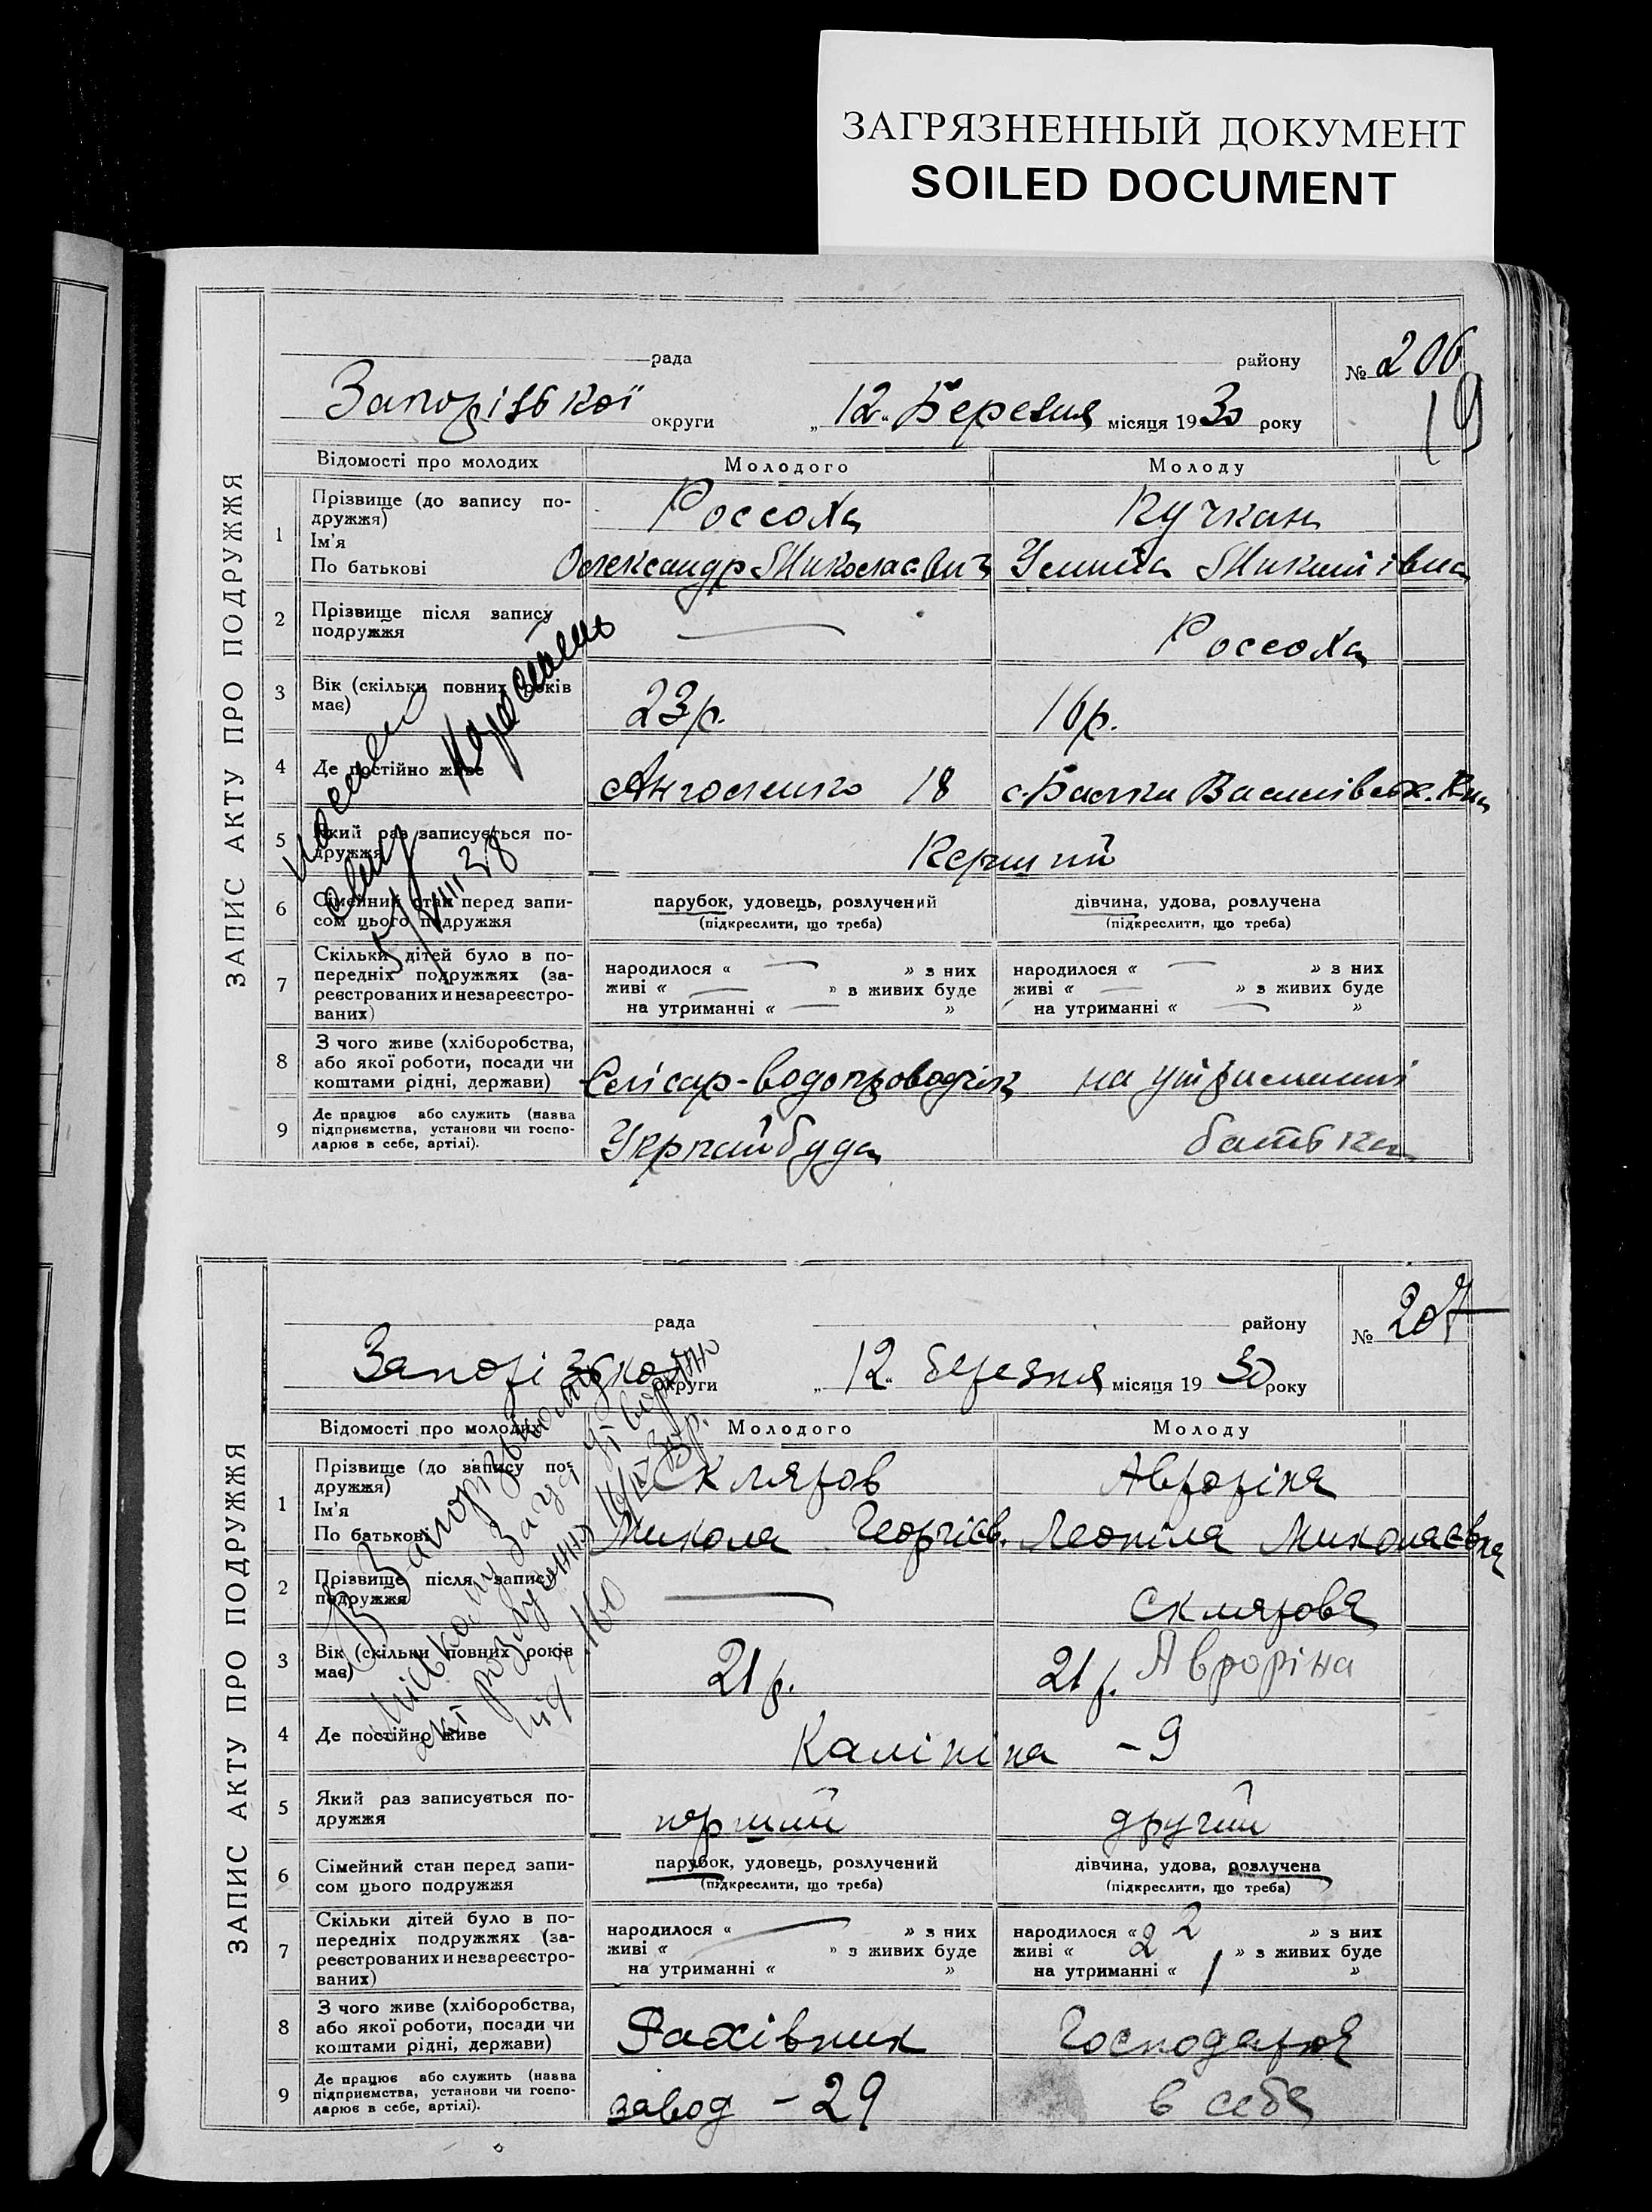 ЗАГРЯЗНЕННЫЙ ДОКУМЕНТ
SOILED DOCUMENT
ЗАПИС АКТУ ПРО ПОДРУЖЖЯ
рада району № 206
19
Запорізької округи „12“ Березня місяця 1930 року
Відомості про молодих Молодого Молоду
1 Прізвище (до запису подружжя) Россоха Кучкан
Ім'я
По батькові Олександр Миколаєвич Улита Микитівна
2 Прізвище після запису подружжя — Россоха
3 Вік (скільки повних років має) 23 р. 16 р.
4 Де постійно живе 18 с. Балки Василівськ. р-на
5 Який раз записується подружжя Перший
6 Сімейний стан перед записом цього подружжя парубок, удовець, розлучений дівчина, удова, розлучена
(підкреслити, що треба) (підкреслити, що треба)
7 Скільки дітей було в попередніх подружжях (зареєстрованих и незареєстрованих)
народилося « — » з них народилося « — » з них
живі « — » з живих буде живі « — » з живих буде
на утриманні « — » на утриманні « — »
8 З чого живе (хліборобства, або якої роботи, посади чи коштами рідні, держави) Слісар-водопроводчик на утриманні
9 Де працює або служить (назва підприємства, установи чи господарює в себе, артілі). Укрпайбуда батька
5/VIII 38
ЗАПИС АКТУ ПРО ПОДРУЖЖЯ
рада району № 207
Запорізької округи „12“ березня місяця 1930 року
Відомості про молодих Молодого Молоду
1 Прізвище (до запису подружжя) Скляров Авроріна
Ім'я
По батькові Микола Георгієв. Леоніла Миколаєвна
2 Прізвище після запису подружжя — Склярова
3 Вік (скільки повних років має) 21 р. 21 р. Авроріна
4 Де постійно живе Калініна - 9
5 Який раз записується подружжя перший другий
6 Сімейний стан перед записом цього подружжя парубок, удовець, розлучений дівчина, удова, розлучена
(підкреслити, що треба) (підкреслити, що треба)
7 Скільки дітей було в попередніх подружжях (зареєстрованих и незареєстрованих)
народилося « — » з них народилося « 2 » з них
живі « » з живих буде живі « 2 » з живих буде
на утриманні « » на утриманні « 1 »
8 З чого живе (хліборобства, або якої роботи, посади чи коштами рідні, держави) Фахівник Господарює
9 Де працює або служить (назва підприємства, установи чи господарює в себе, артілі). завод - 29 в себе
В Запорізькому
міськ. Загсі утворено
акт розлученню 16/IV 30 р.
під № 160